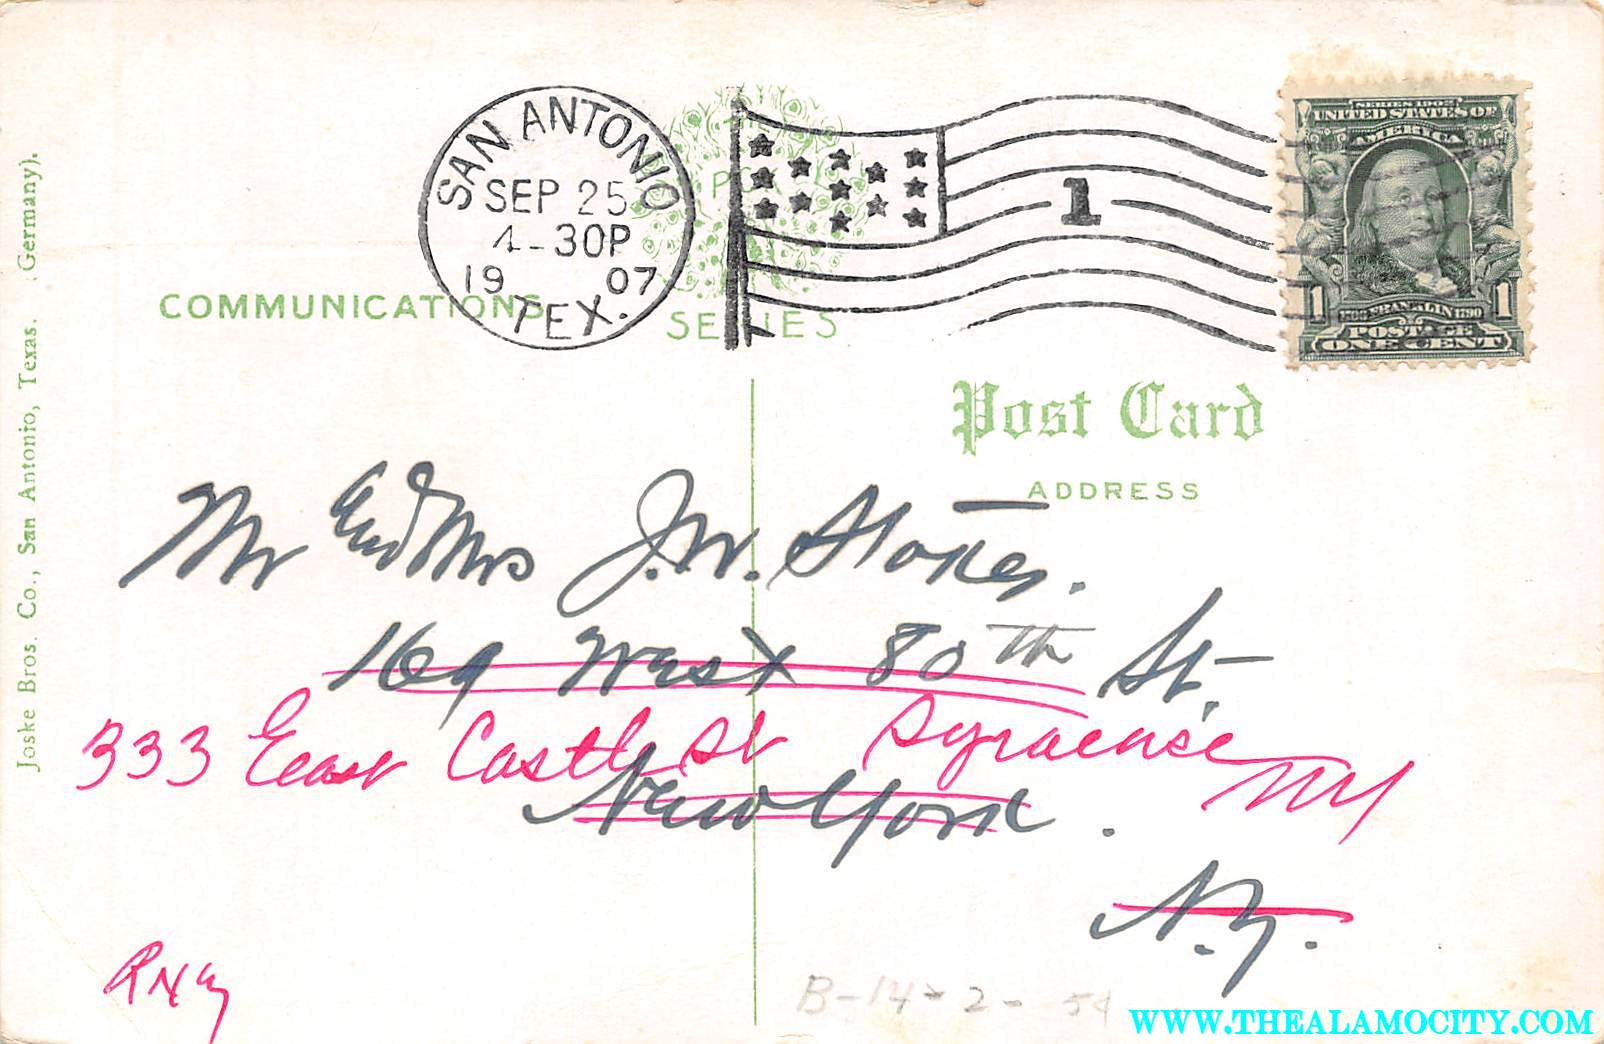 SAN ANTONIO
SEP 25
4-30P
1907
TEX.
1
SERIES 1902
UNITED STATES OF
AMERICA
1706 FRANKLIN 1790
1 1
POSTAGE
ONE CENT
COMMUNICATIONS
SERIES
Post Card
ADDRESS
Joske Bros. Co., San Antonio, Texas. Germany).
Mr and Mrs J.W. Stokes.
169 West 80th St.
333 East Castle St Syracuse NY
New York.
N.Y.
B-14-2- 5¢
WWW.THEALAMOCITY.COM